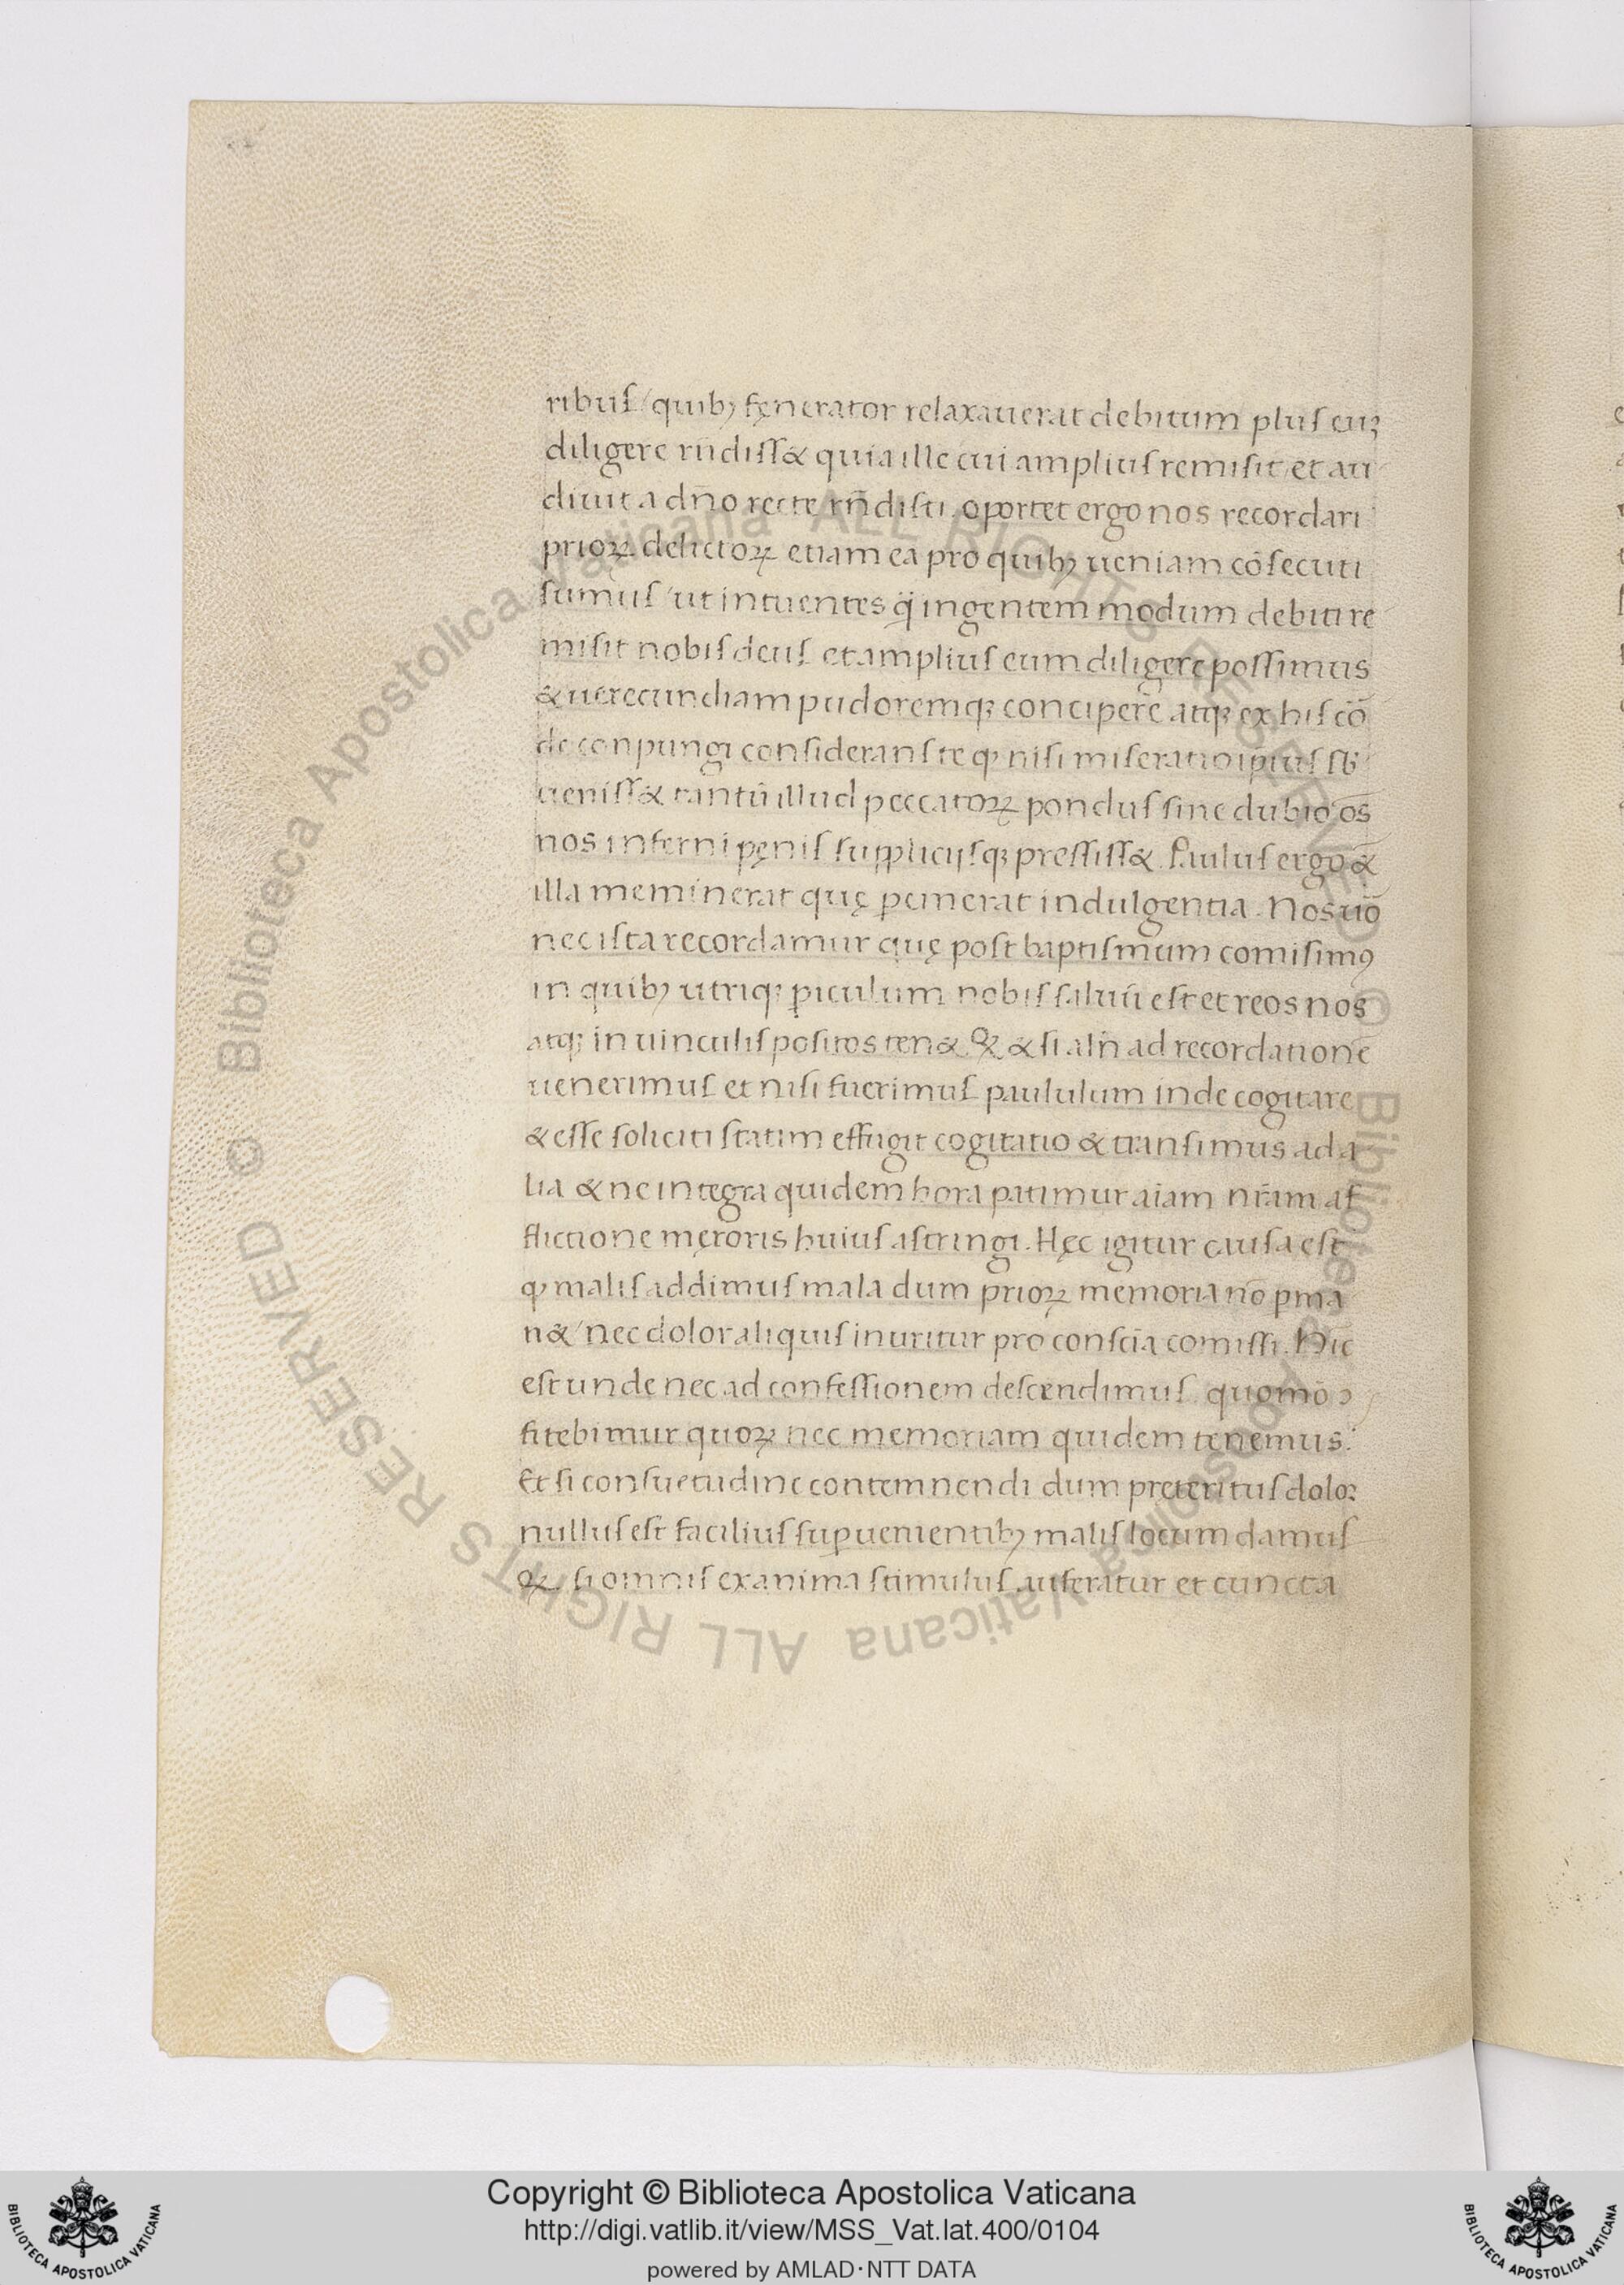 ribuſ / quibꝫ fęnerator relaxauerat debitum pluſ euꝫ
diligere rñdiſſ& quia ille cui ampliuſ remiſit / et au
diuit a dño recte rñdiſti. oportet ergo nos recordari
prioꝝ delictoꝝ etiam ea pro quibꝫ ueniam cōſecuti
ſumuſ / ut intuentes ꝙ̈ ingentem modum debiti re
miſit nobiſ deuſ et ampliuſ eum diligere poſſimus
& uerecundiam pudoremqꝫ concipere atqꝫ ex hiſ cō
de conpungi conſideranſ te ꝙ niſi miſeratio ipſiuſ ſb
ueniſſ& tantū illud peccatoꝝ ponduſ ſine dubio os
nos inferni pęniſ ſuppliciiſqꝫ preſſiſſ&. Pauluſ ergo &
illa meminerat quę ꝑemerat indulgentia. Nos uō
nec iſta recordamur quę poſt baptiſmum comiſimꝰ
in quibꝫ utriqꝫ ꝑiculum nobiſ ſaluū eſt et reos nos
atqꝫ in uinculiſ poſitos ten&. Qꝝ & ſi alr̄ ad recordationē
uenerimuſ et niſi fuerimuſ paululum inde cogitare
& eſſe ſoliciti ſtatim effugit cogitatio & tranſimus ad a
lia & ne integra quidem hora patimur aīam nr̄am af
flictione męroris huiuſ aſtringi. Hęc igitur cauſa eſt
ꝙ maliſ addimuſ mala dum prioꝝ memoria nō ꝑma
n& / nec dolor aliquiſ inuritur pro conſcīa comiſſi. Hic
eſt unde nec ad confeſſionem deſcendimuſ. quomō ↄ
fitebimur quoꝝ nec memoriam quidem tenemus.
Et ſi conſuetudine contemnendi dum preterituſ dolor
nulluſ eſt faciliuſ ſuꝑuenientibꝫ maliſ locum damuſ
Qꝝ. ſi omniſ ex anima ſtimuluſ auferatur et cuncta
Copyright © Biblioteca Apostolica Vaticana
http://digi.vatlib.it/view/MSS_Vat.lat.400/0104
powered by AMLAD·NTT DATA
© Biblioteca Apostolica Vaticana ALL RIGHTS RESERVED
© Biblioteca Apostolica Vaticana ALL RIGHTS RESERVED
BIBLIOTECA APOSTOLICA VATICANA
BIBLIOTECA APOSTOLICA VATICANA